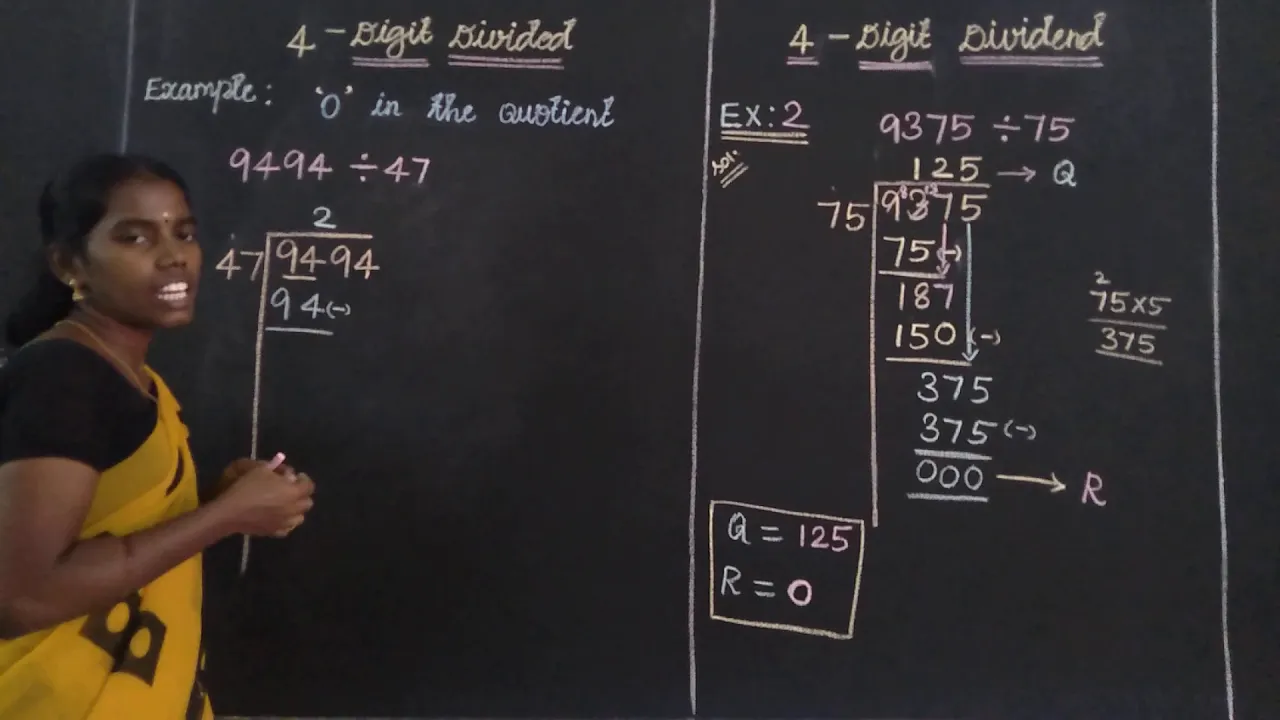 4 - Digit Divided
Example: '0' in the Quotient
9494 ÷ 47
2
47 9494
94 (-)
4 - Digit Dividend
Ex: 2
9375 ÷ 75
Sol:
125 → Q
8 12
75 9375
75 (-)
187
150 (-)
375
375 (-)
000 → R
2
75×5
375
Q = 125
R = 0